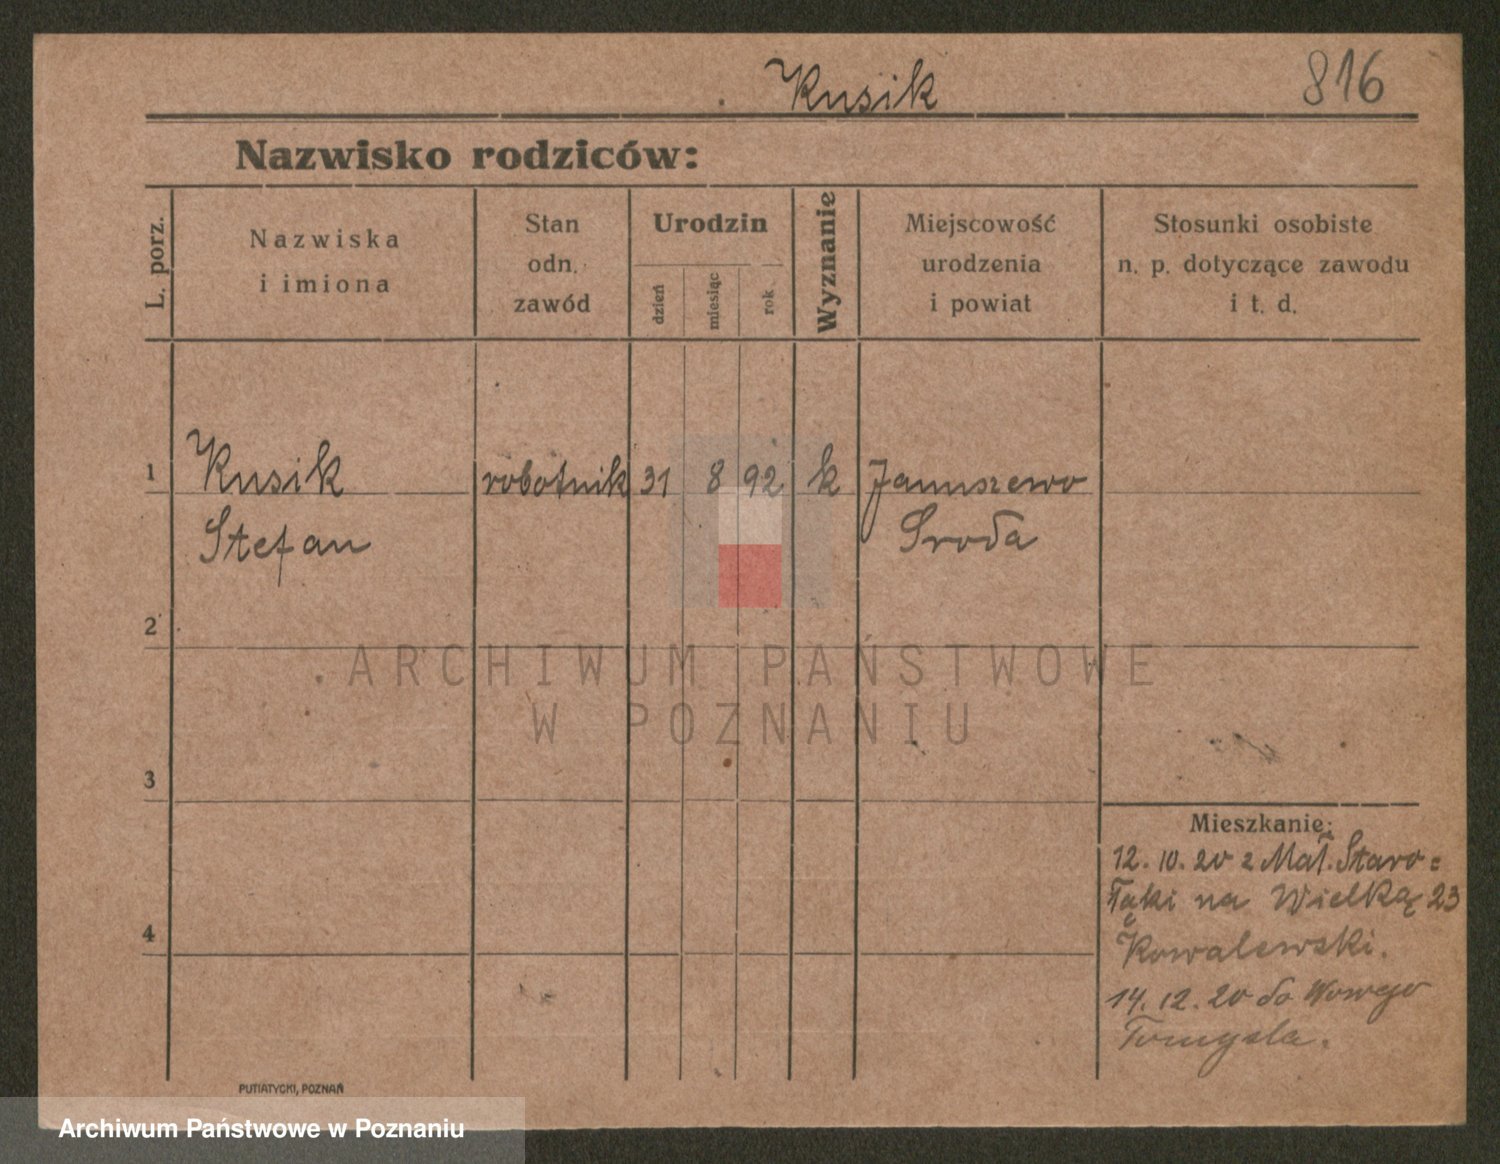 Kusik
816
Nazwisko rodziców:
L. porz.
Nazwiska
i imiona
Stan
odn.
zawód
Urodzin
dzień
miesiąc
rok
Wyznanie
Miejscowość
urodzenia
i powiat
Stosunki osobiste
n. p. dotyczące zawodu
i t. d.
1 Kusik robotnik 31 8 92 k Januszewo
Stefan Sroda
2
ARCHIWUM PAŃSTWOWE
W POZNANIU
3
Mieszkanie:
12.10.20 z Mał. Staro=
łęki na Wielką 23
Kowalewski.
14.12.20 do Nowego
Tomysla.
4
PUTIATYCKI, POZNAŃ
Archiwum Państwowe w Poznaniu